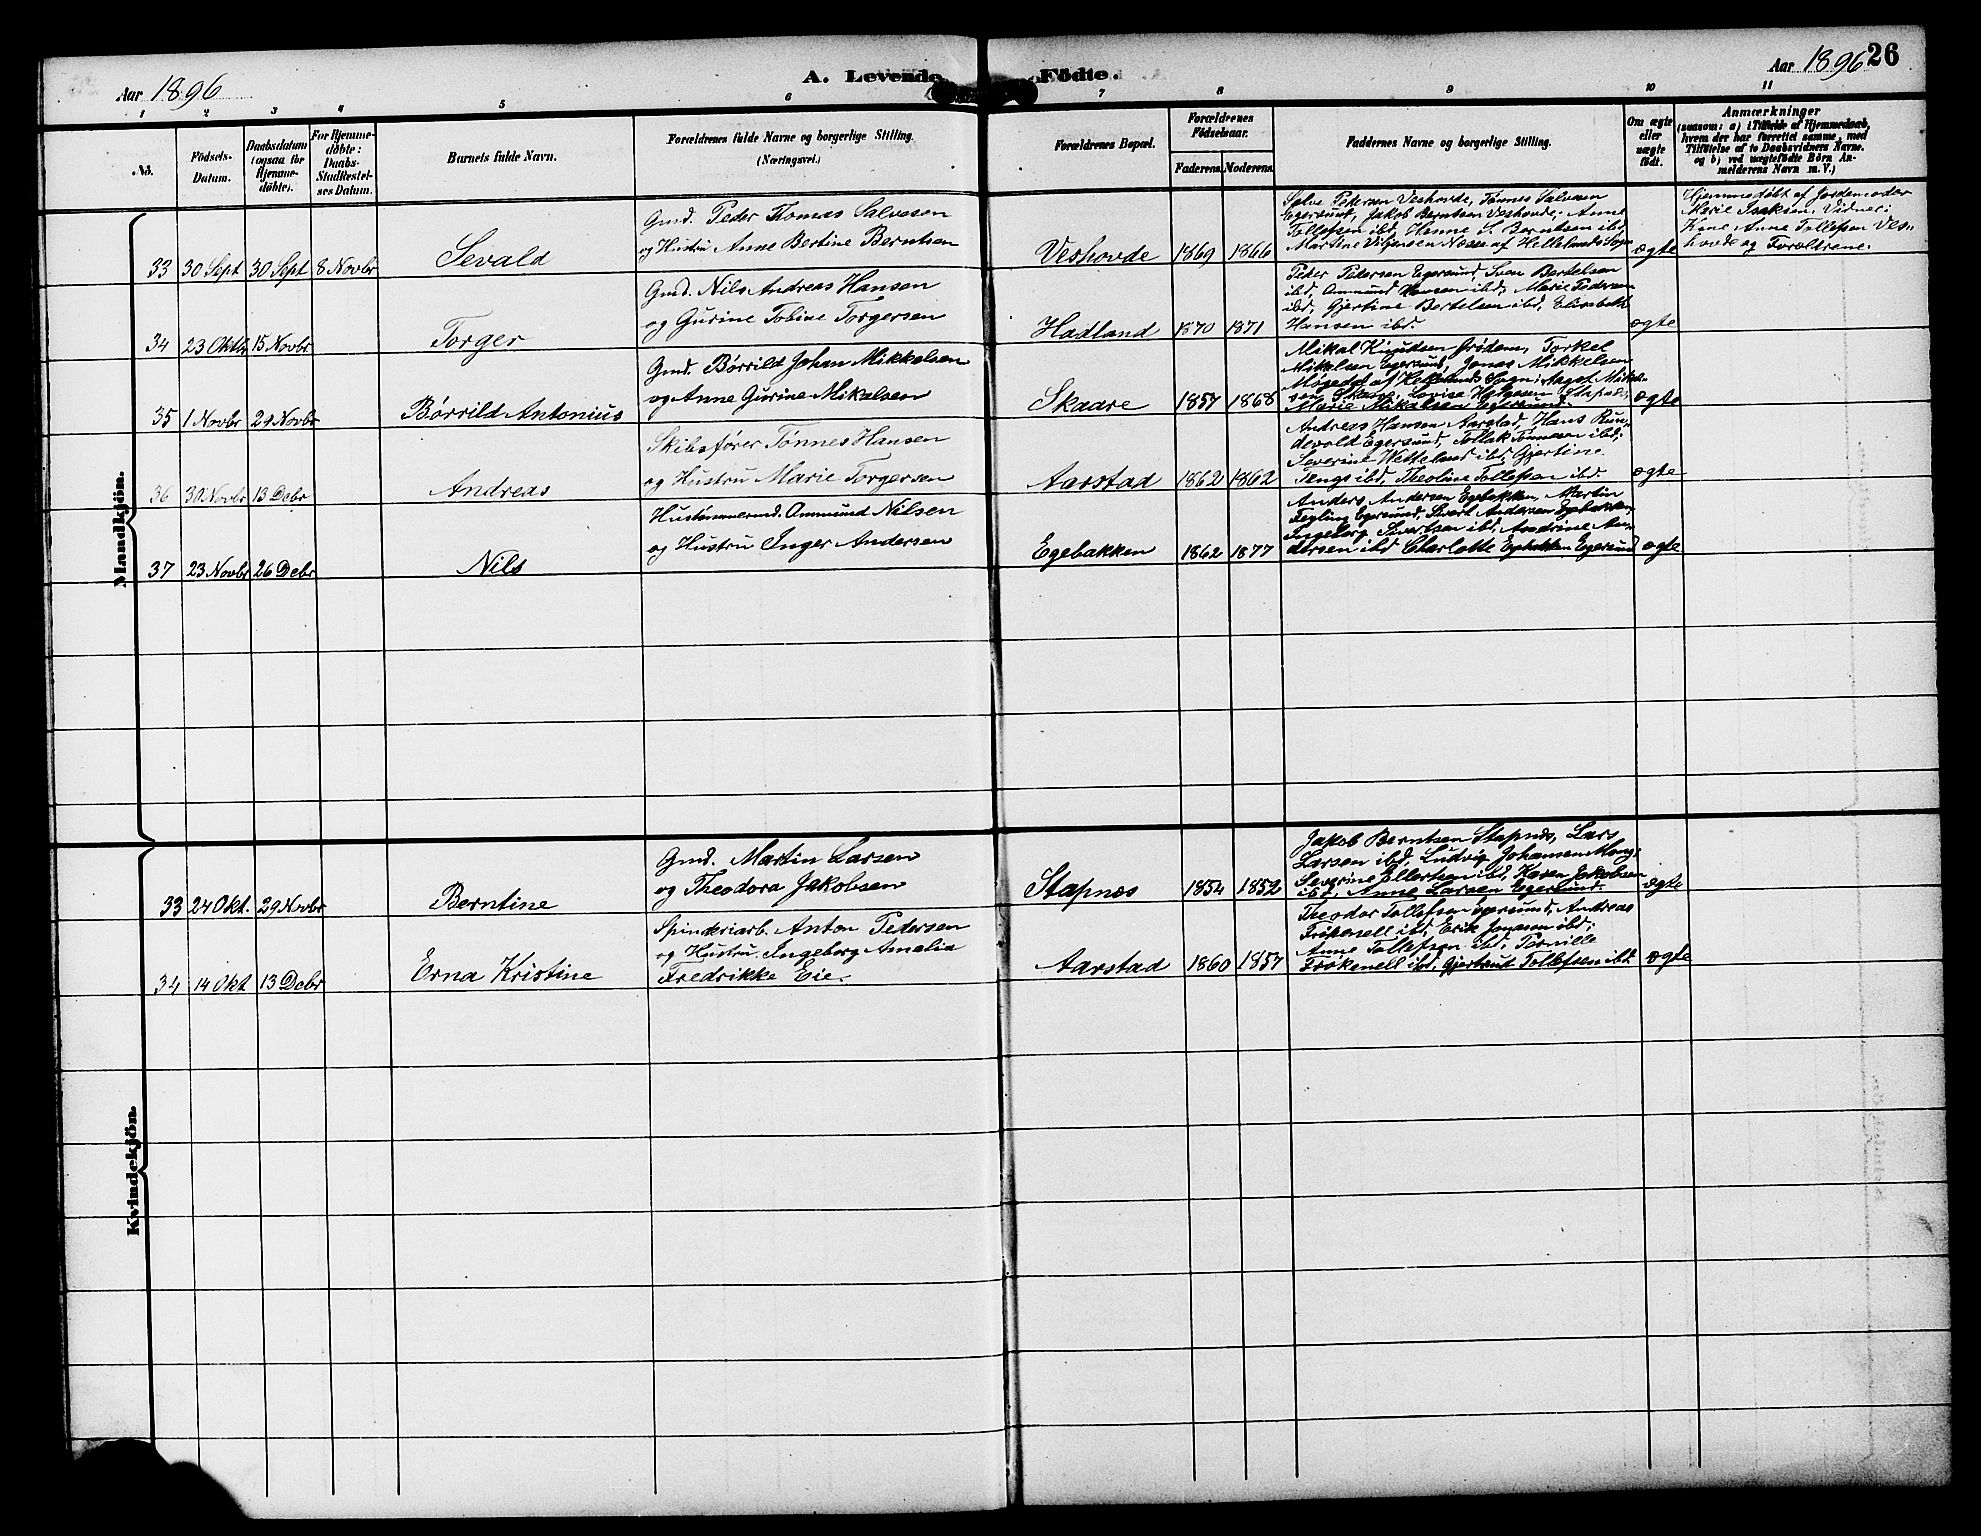 Aar 1896
A. Levende Födte.
Aar 1896 26
1 2 3 4 5 6 7 8 9 10 11
No.
Födsels-Datum.
Daabsdatum (ogsaa for Hjemmedöbte).
For Hjemmedöbte: Daabs-Stadfæstelses Datum.
Barnets fulde Navn.
Forældrenes fulde Navne og borgerlige Stilling.
(Næringsvei.)
Forældrenes Bopæl.
Forældrenes Födselsaar.
Faderens. Moderens.
Faddernes Navne og borgerlige Stilling.
Om ægte eller uægte födt.
Anmærkninger
(saasom: a) i Tilfælde af Hjemmedaab,
hvem der har forrettet samme, med
Tilföielse af to Daabsvidners Navne,
og b) ved uægtefödte Börn Anmelderens Navn m. V.)
Mandkjön.
33 30 Sept 30 Sept 8 Novbr Sevald
Gmd. Peder Thomas Salvesen
og Hustru Anne Bertine Berntsen
Veshovde 1869 1866
Sølve Petersen Veshovde, Tønnes Salvesen
Egersund, Jakob Berntsen Veshovde, Anne
Tollefsen ibd, Hanne S. Berntsen ibd,
Martine Næse af Hellelands Sogn
ægte
Hjemmedøbt af Jordemoder
Marie Isaksen. Vidner:
Kone Anne Tollefsen Ves-
hovde og Forældrene.
34 23 Oktbr 15 Novbr Torger
Gmd. Nils Andreas Hansen
og Gurine Tobine Torgersen
Hadland 1870 1871
Peder Pedersen Egersund, Sven Bertelsen
ibd, Ommund Hansen ibd, Marie Pedersen
ibd, Gjertine Bertelsen ibd, Elisabeth
Hansen ibd.
ægte
35 1 Novbr 29 Novbr Børrild Antonius
Gmd. Børrild Johan Mikkelsen
og Anne Gurine Mikalsen
Skaare 1857 1868
Mikal Knudsen Frødem, Torkel
Mikelsen Egersund, Jonas Mikkelsen
Møgedal af Hellelands Sogn, Aaget Mikkel-
sen Skaare, Lovise Helgesen Stapnæs,
Marie Mikalsen Egersund.
ægte
36 30 Novbr 13 Debr Andreas
Skibsfører Tønnes Hansen
og Hustru Marie Torgersen
Aarstad 1862 1862
Andreas Hansen Aarstad, Hans Run-
devold Egersund, Tollak Tønnesen ibd,
Severine Wetteland ibd, Gjertine
Tengs ibd, Theoline Tollefsen ibd.
ægte
37 23 Novbr 26 Debr Nils
Hustømmermd. Ommund Nilsen
og Hustru Inger Andersen
Egebakken 1862 1877
Anders Andersen Egebakken, Martin
Tegling Egersund, Sivert Andersen Egebakken,
Ingeborg Sivertsen ibd, Andrine An-
dersen ibd Charlotte Egebakken Egersund
ægte
Kvindekjön.
33 24 Okt. 29 Novbr Berntine
Gmd. Martin Larsen
og Theodora Jakobsen
Stapnæs 1854 1852
Jakob Berntsen Stapnæs, Lars
Larsen ibd, Ludvig Johansen Mong,
Severine Ellertsen ibd, Karen Jakobsen
ibd, Anne Larsen Egersund.
ægte
34 14 Okt 13 Debr Erna Kristine
Spinderiarb. Anton Pedersen
og Hustru Ingeborg Amalia
Fredrikke Eie.
Aarstad 1860 1857
Theodor Tollefsen Egersund, Andreas
Frøkenell ibd, Erik Jonasen ibd,
Anne Tollefsen ibd, Pernille
Frøkenell ibd, Gjertrud Tollefsen ibd.
ægte